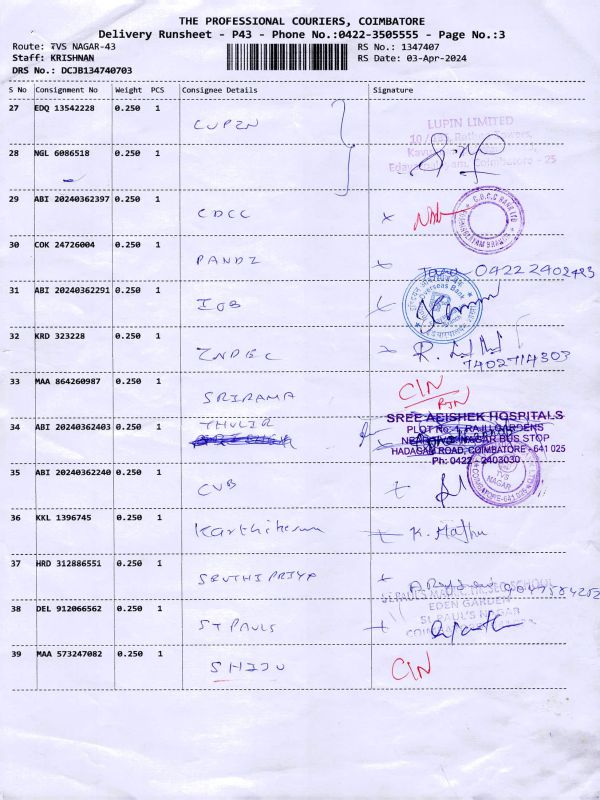 THE PROFESSIONAL COURIERS, COIMBATORE
Delivery Runsheet - P43 - Phone No.:0422-3505555 - Page No.:3
Route: TVS NAGAR-43
Staff: KRISHNAN
DRS No.: DCJB134740703
RS No.: 1347407
RS Date: 03-Apr-2024
S No Consignment No Weight PCS Consignee Details Signature
27 EDQ 13542228 0.250 1
LUPIN
LUPIN LIMITED
28 NGL 6086518 0.250 1
Coimbatore - 25
29 ABI 20240362397 0.250 1
CDCC
30 COK 24726004 0.250 1
PANDI
04222402483
31 ABI 20240362291 0.250 1
IOB
Overseas Bank
32 KRD 323228 0.250 1
INDBC
R.
7402714303
33 MAA 864260987 0.250 1
SRIRAMA
CIN
RTN
34 ABI 20240362403 0.250 1
THULIR
SREE ABISHEK HOSPITALS
PLOT No: 1, RAJU GARDENS
NEAR TVS NAGAR BUS STOP
HADAGAM ROAD, COIMBATORE - 641 025
Ph: 0422 - 2403030
35 ABI 20240362240 0.250 1
CUB
TVS
NAGAR
36 KKL 1396745 0.250 1
Karthikeyan
K. Mathu
37 HRD 312886551 0.250 1
SRUTHI PRIYA
38 DEL 912066562 0.250 1
ST PAULS
EDEN GARDEN
ST. PAUL'S NAGAR
39 MAA 573247082 0.250 1
SHIJU
CIN